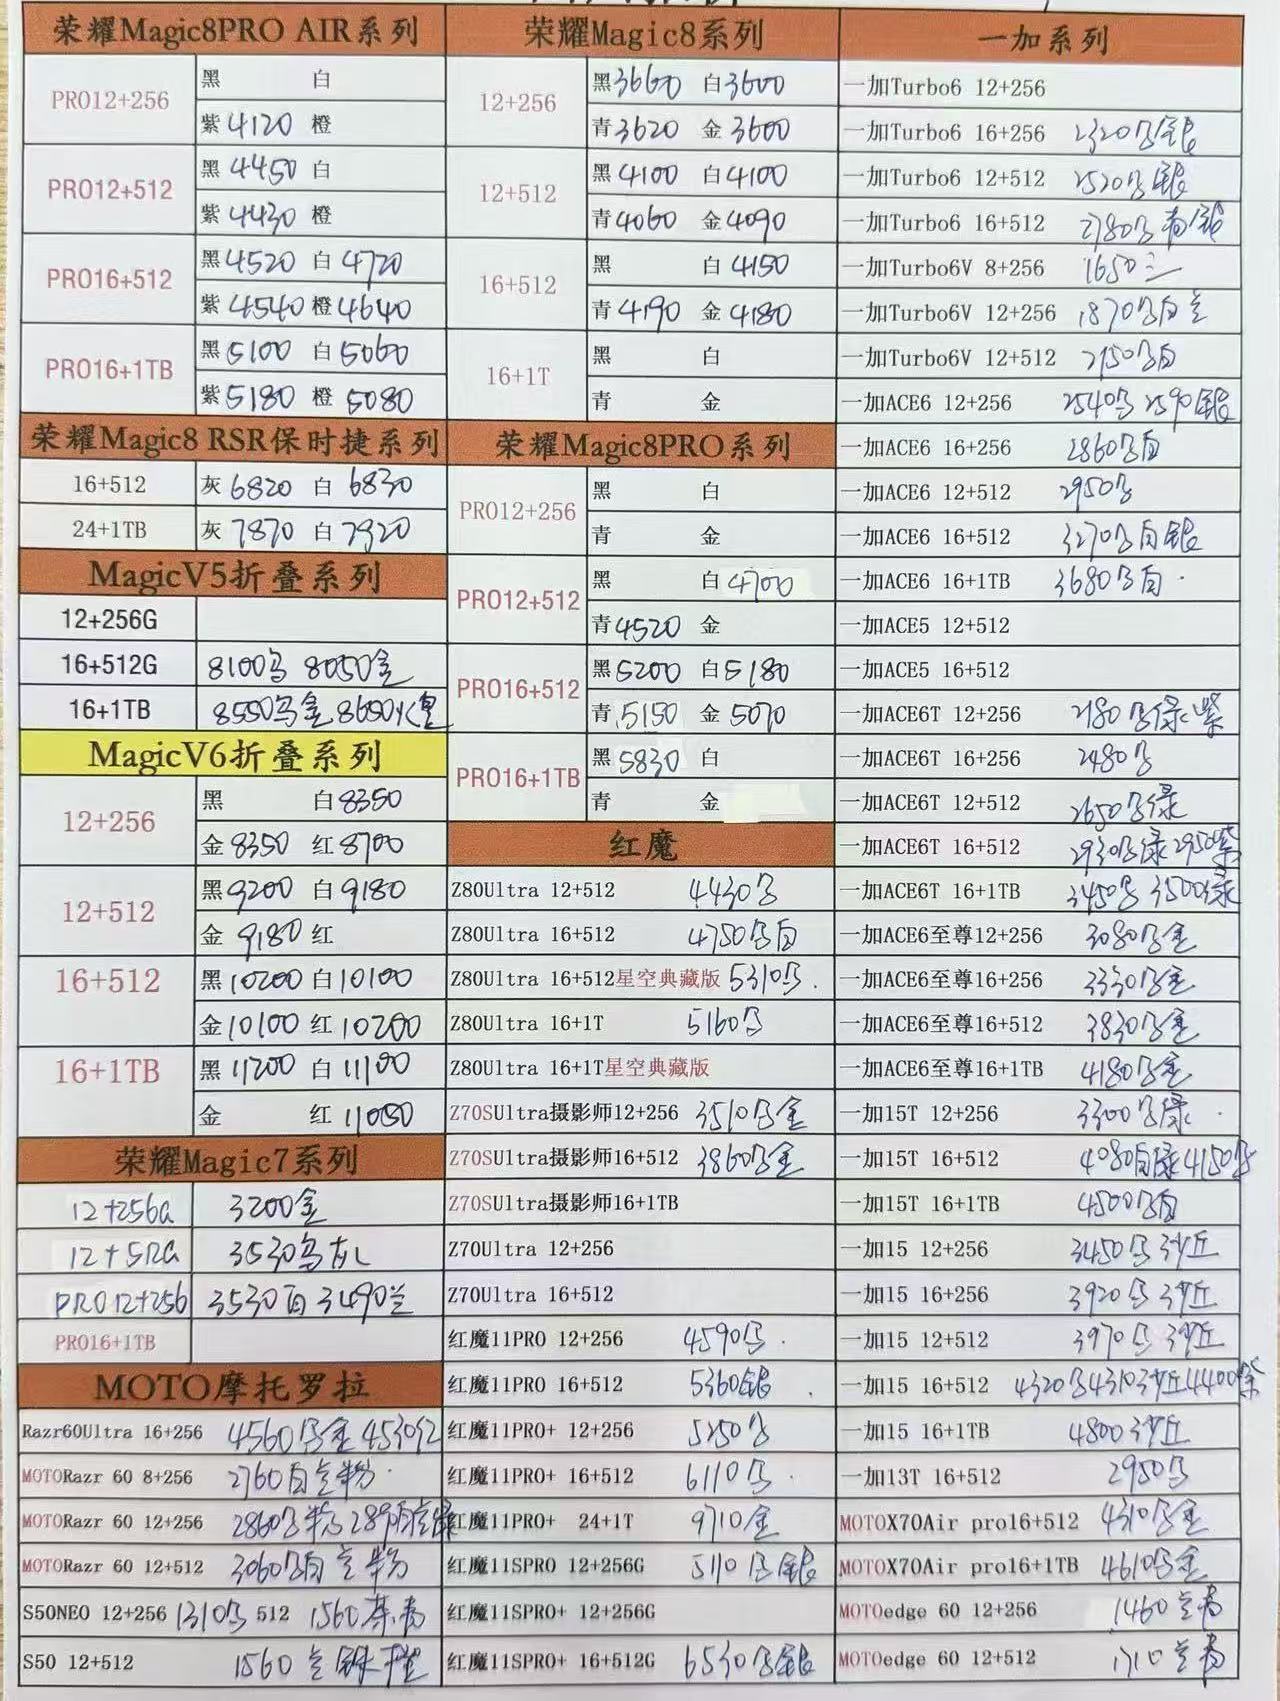 荣耀Magic8PRO AIR系列
PRO12+256 黑 白
紫4120 橙
PRO12+512 黑4450 白
紫4430 橙
PRO16+512 黑4520 白4720
紫4540 橙4640
PRO16+1TB 黑5100 白5060
紫5180 橙5080
荣耀Magic8 RSR保时捷系列
16+512 灰6820 白6830
24+1TB 灰7870 白7920
MagicV5折叠系列
12+256G
16+512G 8100 8050金
16+1TB 8550 金8650
MagicV6折叠系列
12+256 黑 白8350
金8350 红8700
12+512 黑9200 白9180
金9180 红
16+512 黑10200 白10100
金10100 红10200
16+1TB 黑11200 白11100
金 红11050
荣耀Magic7系列
12+256G 3200金
12+512G 3530
PRO12+256 3530白 3490兰
PRO16+1TB
MOTO摩托罗拉
Razr60Ultra 16+256 4560 金 4530红
MOTORazr 60 8+256 2760白兰粉
MOTORazr 60 12+256 2860
MOTORazr 60 12+512 3060 白兰粉
S50NEO 12+256 1310 512 1560
S50 12+512 1560兰
荣耀Magic8系列
12+256 黑3660 白3600
青3620 金3600
12+512 黑4100 白4100
青4060 金4090
16+512 黑 白4150
青4190 金4180
16+1T 黑 白
青 金
荣耀Magic8PRO系列
PRO12+256 黑 白
青 金
PRO12+512 黑 白4700
青4520 金
PRO16+512 黑5200 白5180
青5150 金5070
PRO16+1TB 黑5830 白
青 金
红魔
Z80Ultra 12+512 4430
Z80Ultra 16+512 4750 白
Z80Ultra 16+512星空典藏版 5310
Z80Ultra 16+1T 5160
Z80Ultra 16+1T星空典藏版
Z70SUltra摄影师12+256 3510 金
Z70SUltra摄影师16+512 3860 金
Z70SUltra摄影师16+1TB
Z70Ultra 12+256
Z70Ultra 16+512
红魔11PRO 12+256 4590
红魔11PRO 16+512 5360银
红魔11PRO+ 12+256 5250
红魔11PRO+ 16+512 6110
红魔11PRO+ 24+1T 9710金
红魔11SPRO 12+256G 5110 银
红魔11SPRO+ 12+256G
红魔11SPRO+ 16+512G 6530 银
一加系列
一加Turbo6 12+256
一加Turbo6 16+256 2320 银
一加Turbo6 12+512 2520 银
一加Turbo6 16+512 2780 青银
一加Turbo6V 8+256 1650兰
一加Turbo6V 12+256 1870 白兰
一加Turbo6V 12+512 2150 白
一加ACE6 12+256 2540 2590银
一加ACE6 16+256 2860 白
一加ACE6 12+512 2950
一加ACE6 16+512 3270 白银
一加ACE6 16+1TB 3680 白
一加ACE5 12+512
一加ACE5 16+512
一加ACE6T 12+256 2180 绿紫
一加ACE6T 16+256 2480
一加ACE6T 12+512 2650 绿
一加ACE6T 16+512 2930 绿 2950紫
一加ACE6T 16+1TB 3450 3500绿
一加ACE6至尊12+256 3080 金
一加ACE6至尊16+256 3330 金
一加ACE6至尊16+512 3830 金
一加ACE6至尊16+1TB 4180 金
一加15T 12+256 3300 绿
一加15T 16+512 4080白绿4150
一加15T 16+1TB 4500 白
一加15 12+256 3450 沙丘
一加15 16+256 3920 沙丘
一加15 12+512 3970 沙丘
一加15 16+512 4320 4310沙丘4400紫
一加15 16+1TB 4800沙丘
一加13T 16+512 2950
MOTOX70Air pro16+512 4310 金
MOTOX70Air pro16+1TB 4610 金
MOTOedge 60 12+256 1460兰青
MOTOedge 60 12+512 1710兰青